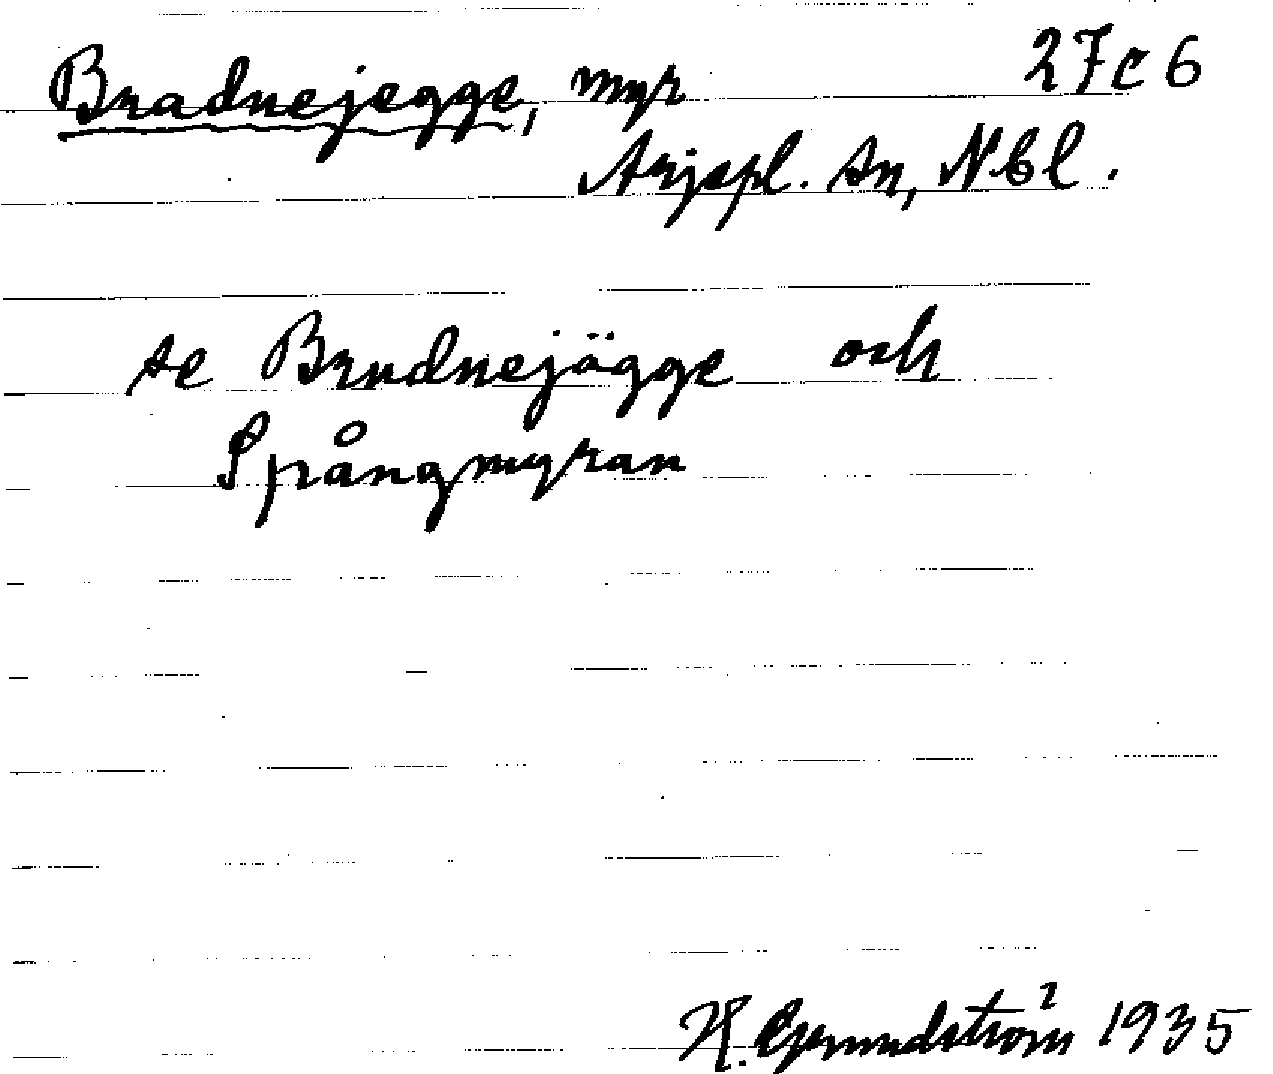 Bradnejegge, myr 27c6
Arjepl. sn, Nbl.
se Brudnejägge och
Spångmyran
H. Grundström 1935